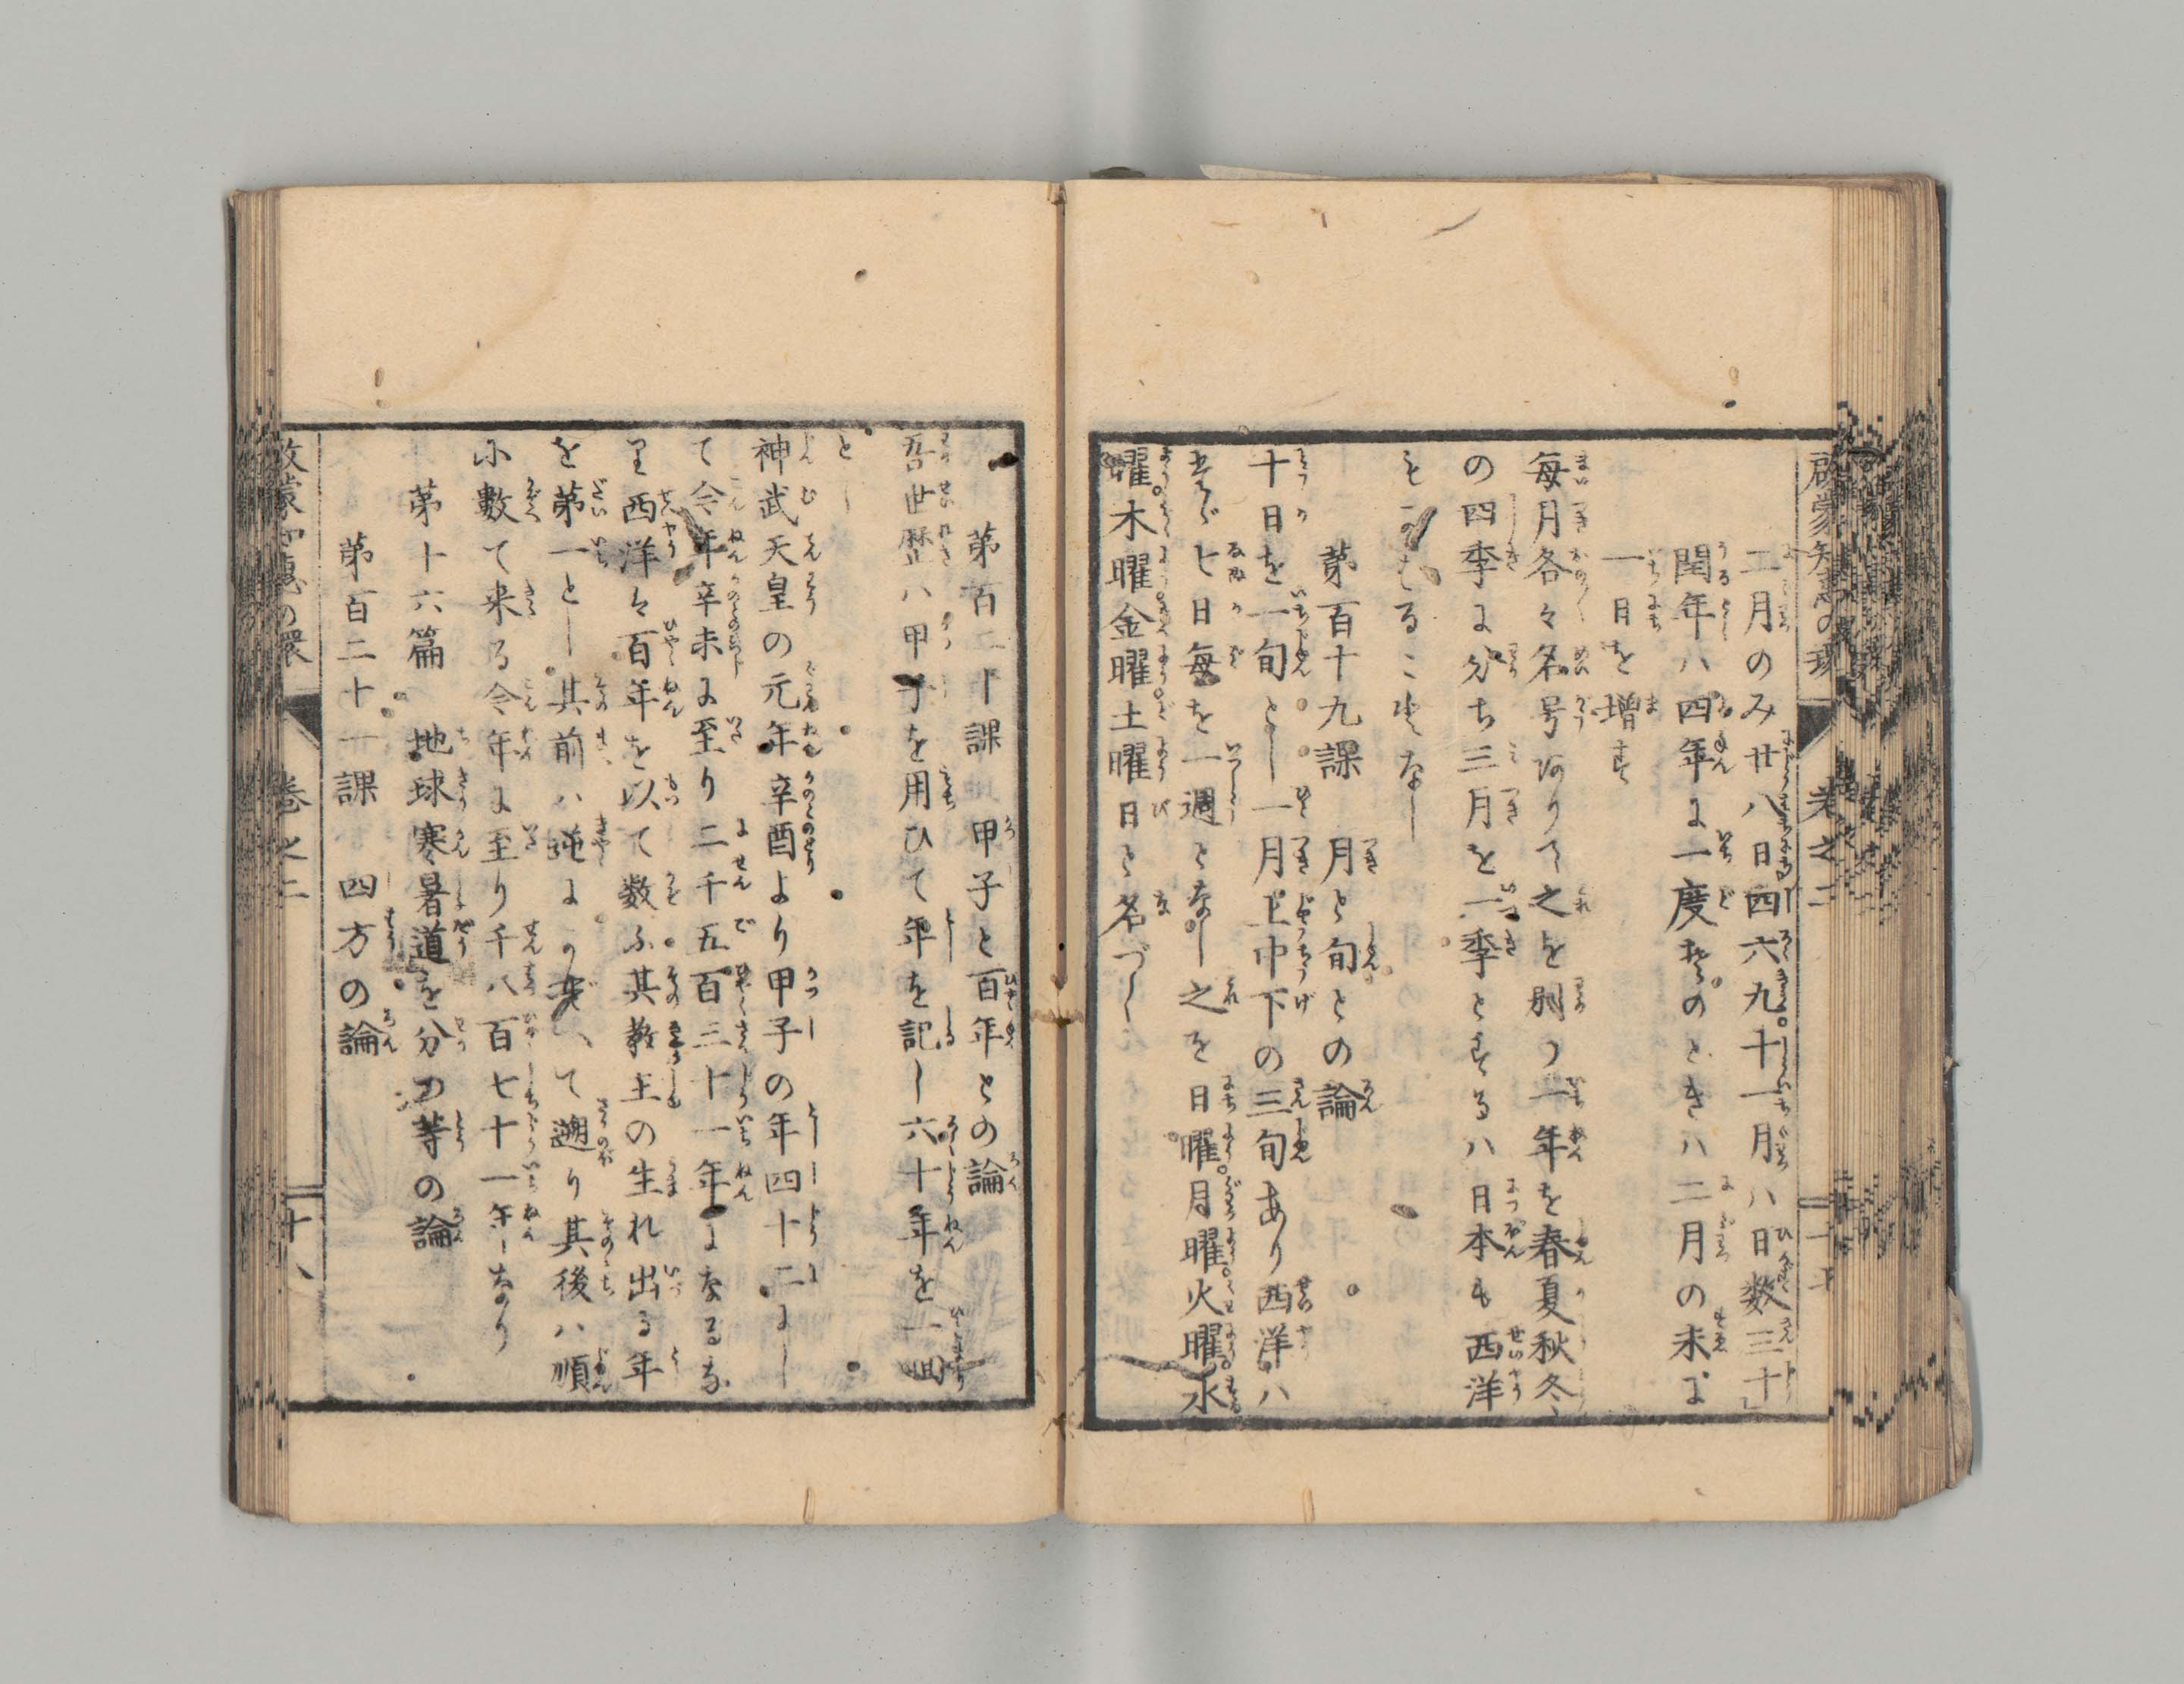 啓蒙知恵の環
巻之二
二月のみ廿八日四六九十一月ハ日数三十
閏年ハ四年に一度其のときハ二月の末に
一日を増す
毎月各々名号ありて之を別つ一年を春夏秋冬
の四季に分ち三月を一季とするハ日本も西洋
もことなること なし
第百十九課　月と旬との論
十日を一旬とし一月上中下の三旬あり西洋ハ
七日毎を一週となし之を日曜月曜火曜水
曜木曜金曜土曜日と名づく
第百二十課　甲子と百年との論
吾世歴ハ甲子を用ひて年を記し六十年を一回
とし
神武天皇の元年辛酉より甲子の年四十二にし
て今年辛未に至り二千五百三十一年になる
西洋々百年を以て数ふ其教主の生れ出る年
を第一とし其前ハ逆に て遡り其後ハ順
に數て来る今年に至り千八百七十一年なり
第十六篇　地球寒暑道を分つ等の論
第百二十一課　四方の論
啓蒙知恵の環
巻之二
十八